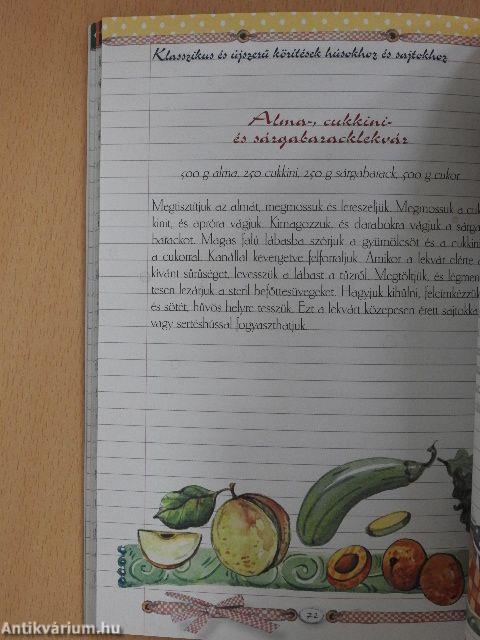 Klasszikus és újszerű körítések húsokhoz és sajtokhoz
Alma-, cukkini-
és sárgabaracklekvár
500 g alma, 250 cukkini, 250 g sárgabarack, 500 g cukor
Megtisztítjuk az almát, megmossuk és lereszeljük. Megmossuk a cuk
kinit, és apróra vágjuk. Kimagozzuk, és darabokra vágjuk a sárga
barackot. Magas falú lábasba szórjuk a gyümölcsöt és a cukkini
a cukorral. Kanállal kevergetve felforraljuk. Amikor a lekvár elérte a
kívánt sűrűséget, levesszük a lábast a tűzről. Megtöltjük, és légmen
tesen lezárjuk a steril befőttesüvegeket. Hagyjuk kihűlni, felcímkézzük
és sötét, hűvös helyre tesszük. Ezt a lekvárt közepesen érett sajtokka
vagy sertéshússal fogyaszthatjuk.
72
Antikvárium.hu